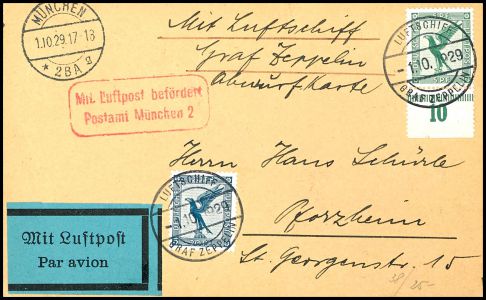 MÜNCHEN
1.10.29.17-18
* 2BA g
Mit Luftschiff
Graf Zeppelin
Abwurfkarte
LUFTSCHIFF
-1.10.1929
GRAF ZEPPELIN
10
Mit Luftpost befördert
Postamt München 2
Herrn Hans Schürle
LUFTSCHIFF
1.10.1929
GRAF ZEPPELIN
Pforzheim
Mit Luftpost
Par avion
St. Georgenstr. 15